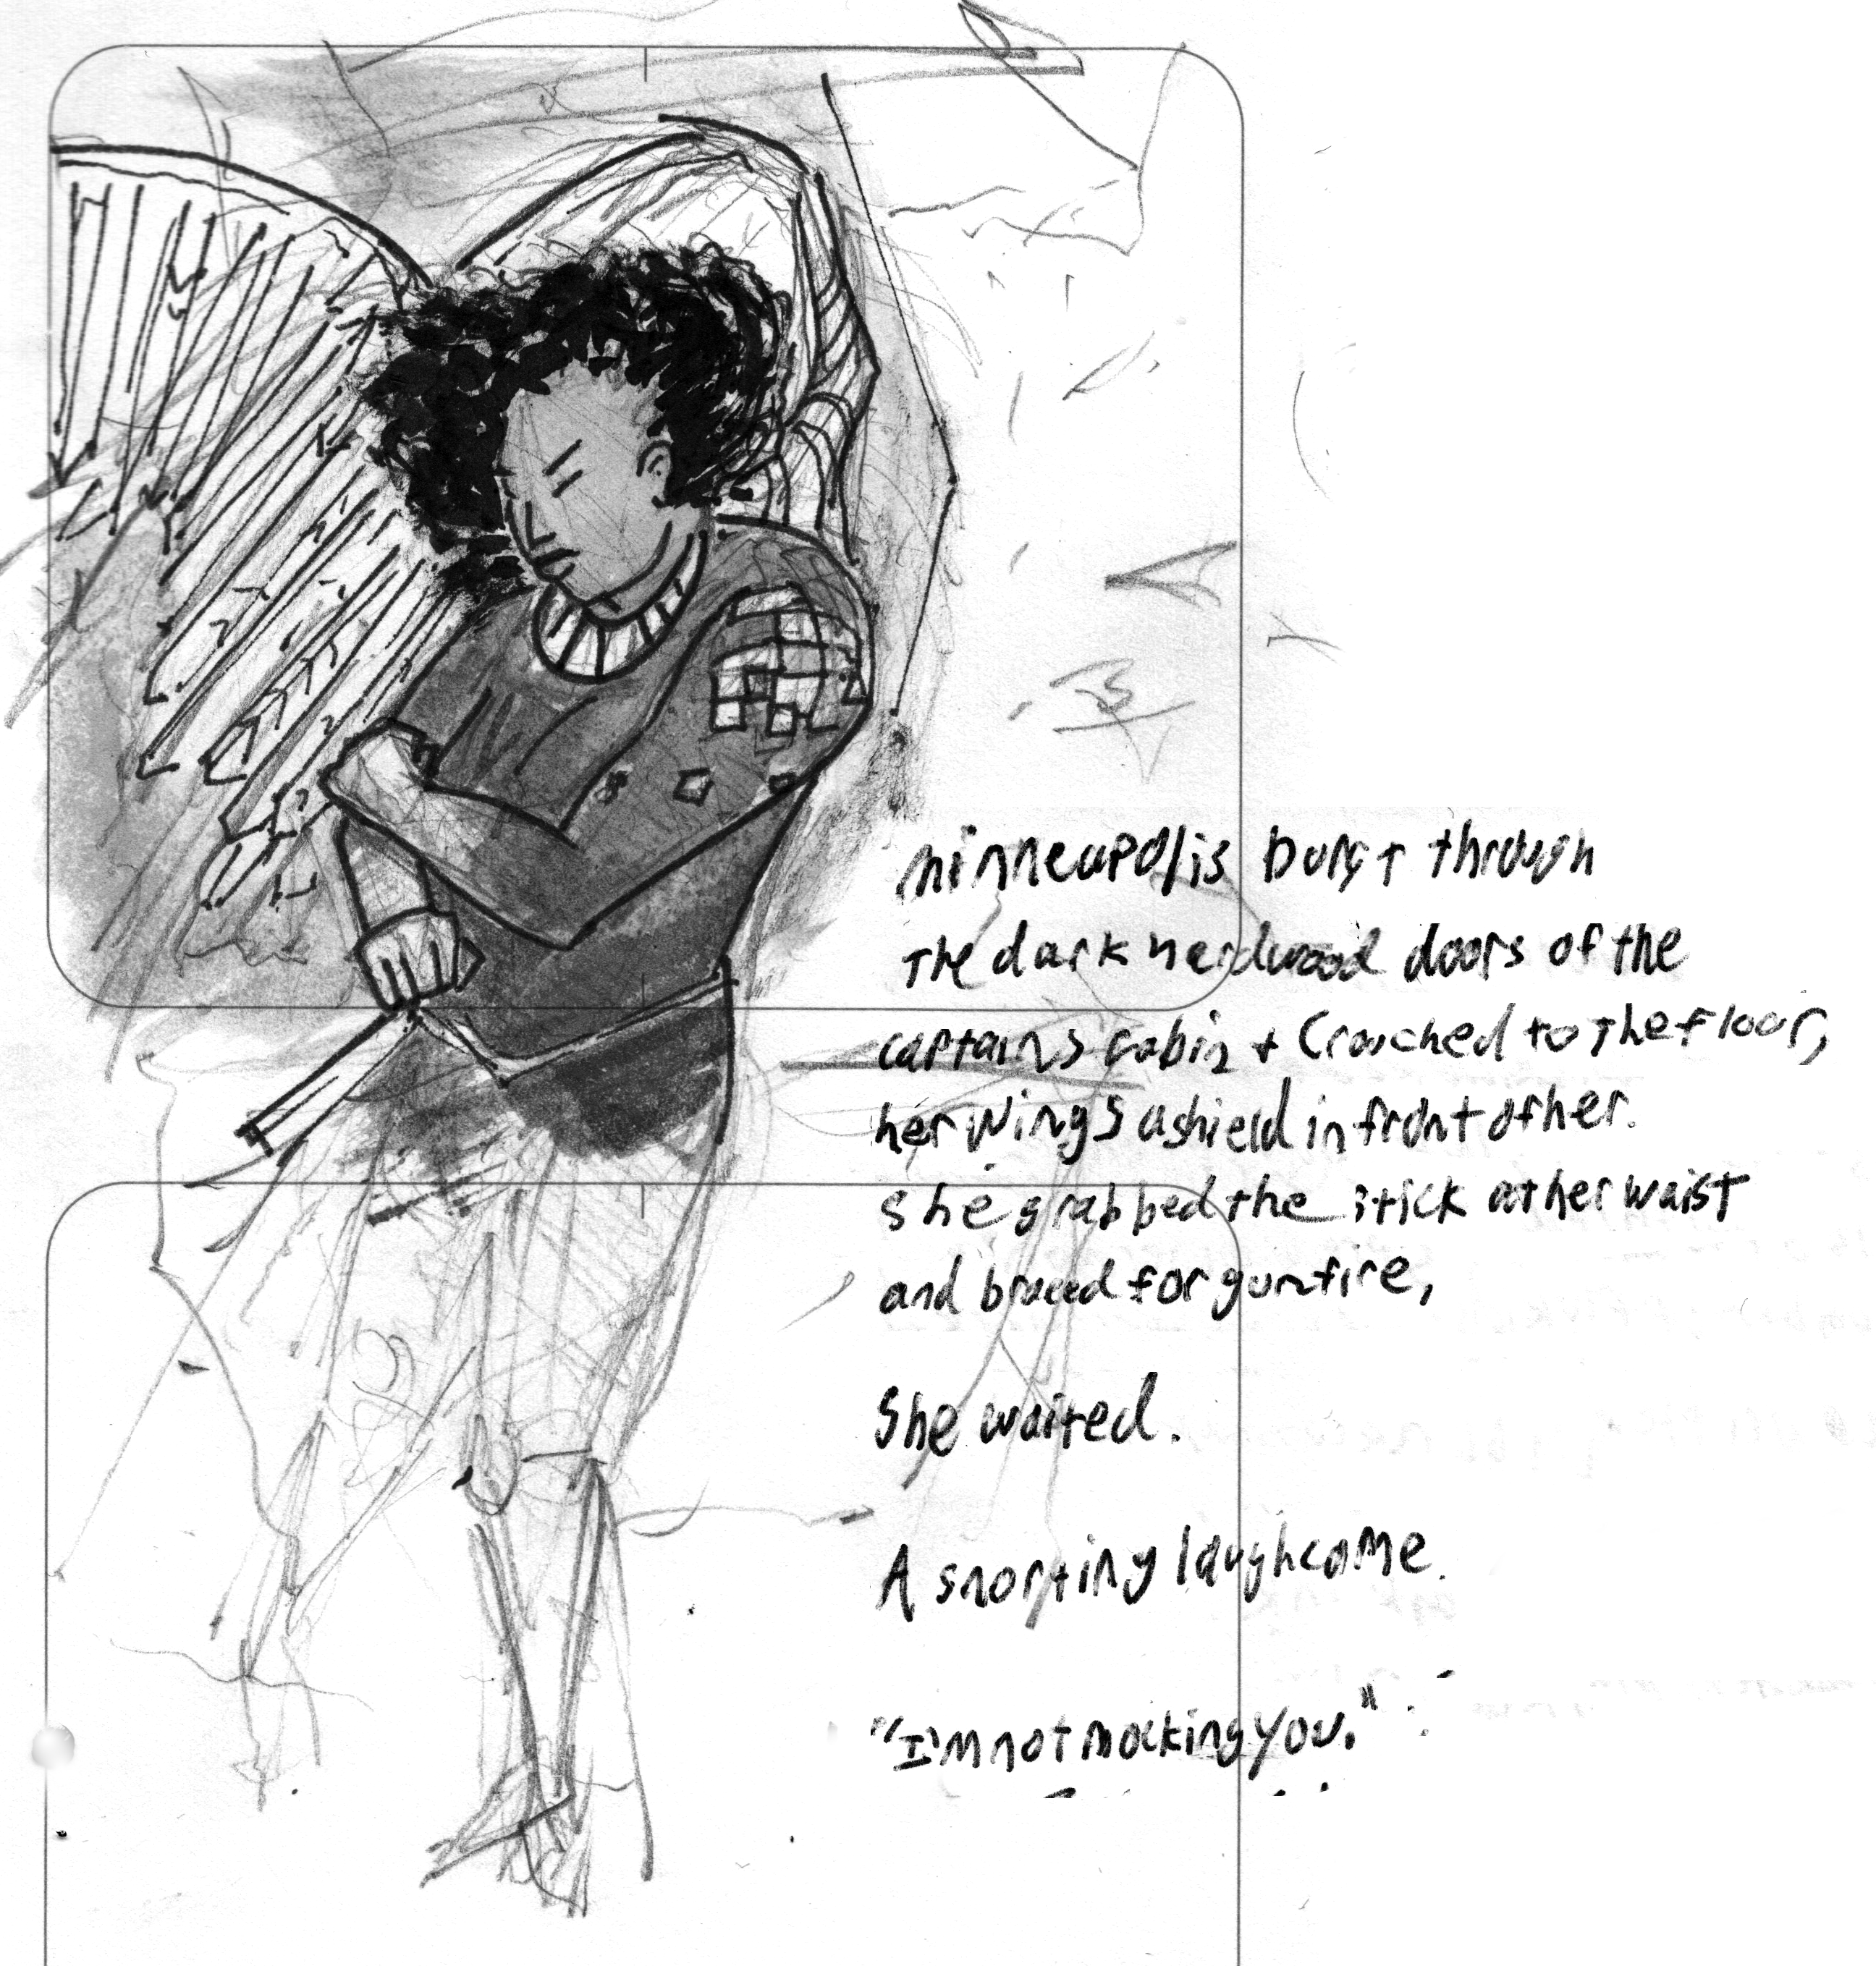 minneapolis burst through
The dark hardwood doors of the
captains cabin + Crouched to the floor,
her wings a shield in front of her.
she grabbed the stick at her waist
and braced for gunfire,
She waited.
A snorting laugh came.
"I'm not mocking you."